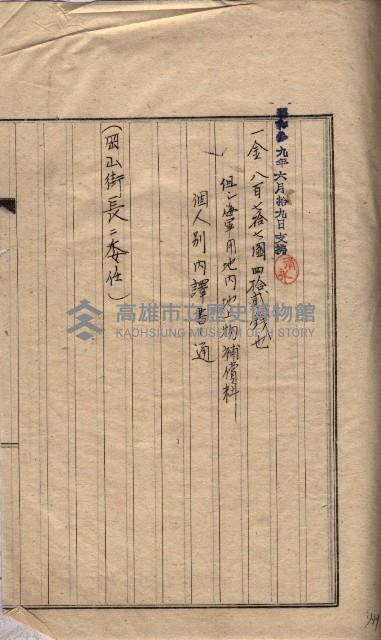 昭和　九年六月拾九日支拂
清永
一金 八百七拾七圓四拾貳錢也
但シ海軍用地内地上物補償料
個人別内譯書通
(岡山街長ニ委任)
高雄市立歷史博物館
KAOHSIUNG MUSEUM OF HISTORY